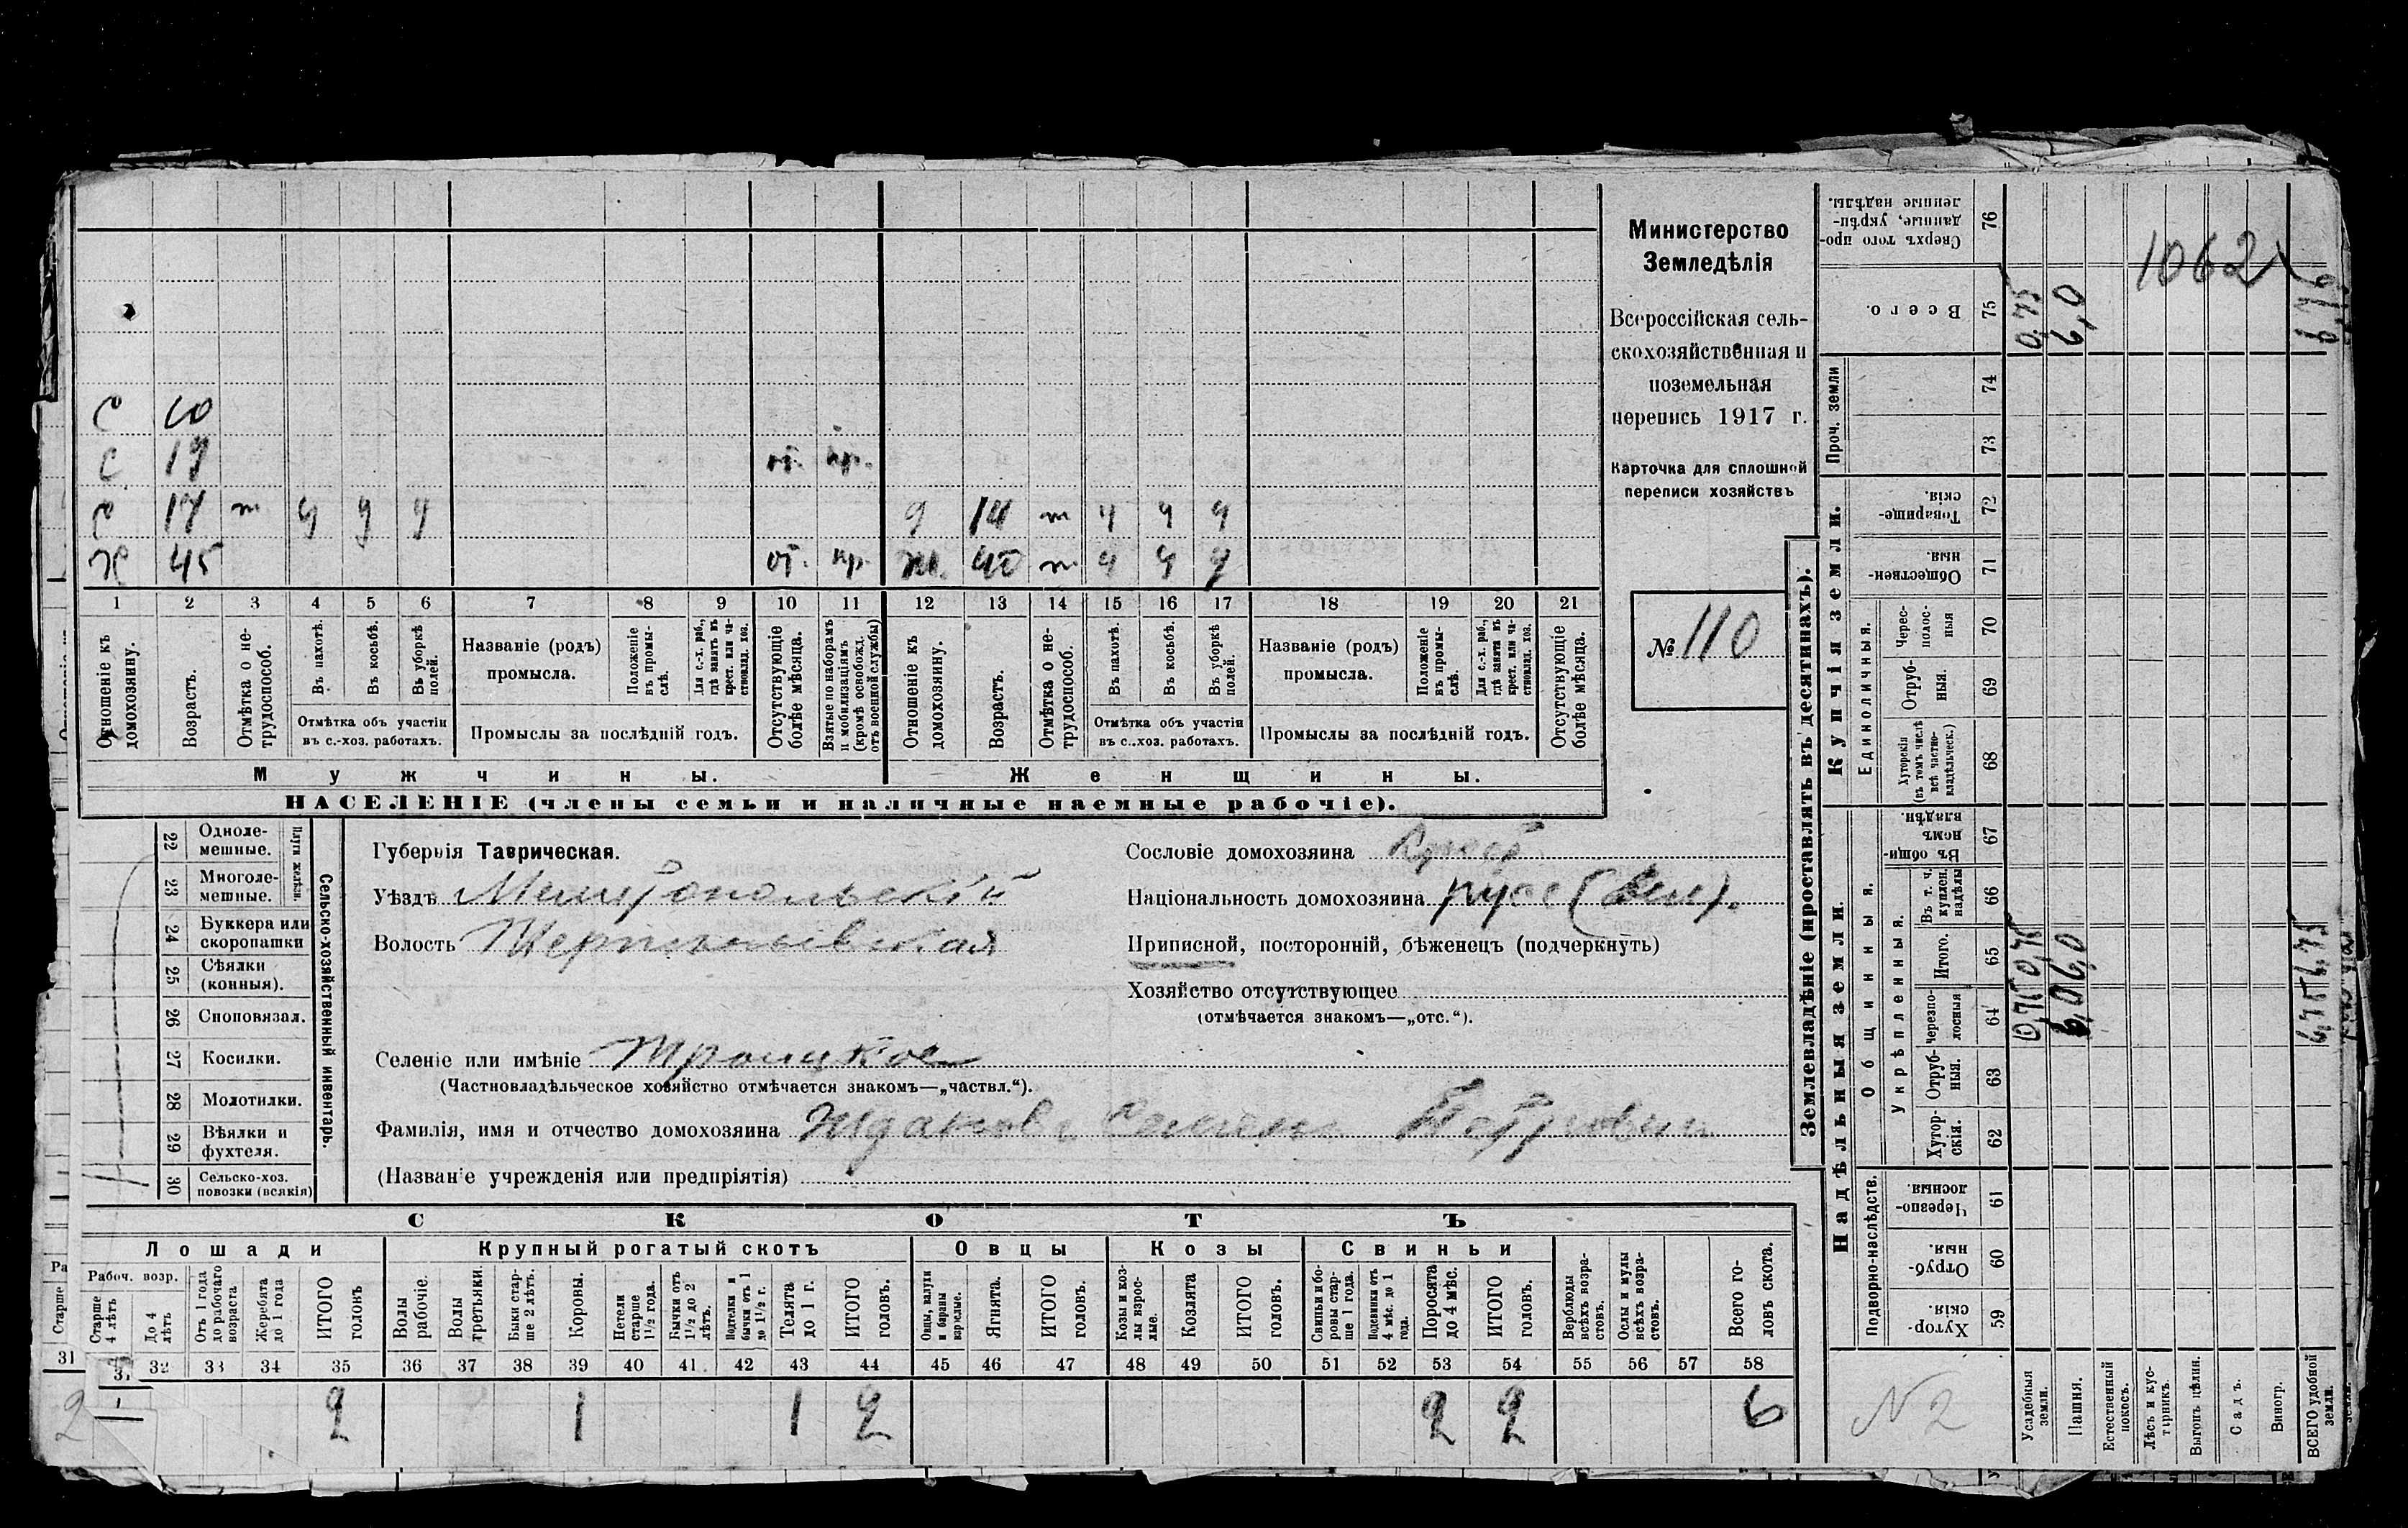 С 10
С 19 от. пр.
С 17 т ч ч ч д 14 т ч ч ч
Х 45 от. пр. ж. 40 т ч ч ч
1 2 3 4 5 6 7 8 9 10 11 12 13 14 15 16 17 18 19 20 21
Отношеніе къ домохозяину.
Возрастъ.
Отмѣтка о нетрудоспособ.
Въ пахотѣ.
Въ косьбѣ.
Въ уборкѣ полей.
Отмѣтка объ участіи
въ с.-хоз. работахъ.
Названіе (родъ)
промысла.
Положеніе въ промыслѣ.
Для с.-х. раб., гдѣ занятъ въ крест. или частновлад. хоз.
Промыслы за послѣдній годъ.
Отсутствующіе болѣе мѣсяца.
Взятые по наборамъ и мобилизаціямъ (кромѣ освобожд. отъ военной службы)
Отношеніе къ домохозяину.
Возрастъ.
Отмѣтка о нетрудоспособ.
Въ пахотѣ.
Въ косьбѣ.
Въ уборкѣ полей.
Отмѣтка объ участіи
въ с.-хоз. работахъ.
Названіе (родъ)
промысла.
Положеніе въ промыслѣ.
Для с.-х. раб., гдѣ занята въ крест. или частновлад. хоз.
Промыслы за послѣдній годъ.
Отсутствующіе болѣе мѣсяца.
Мужчины. Женщины.
НАСЕЛЕНІЕ (члены семьи и наличные наемные рабочіе).
Министерство
Земледѣлія
Всероссійская сель-
скохозяйственная и
поземельная
перепись 1917 г.
Карточка для сплошной
переписи хозяйствъ
№ 110
22 Одноле-
мешные.
23 Многоле-
мешные.
Плуги желѣзн.
24 Буккера или
скоропашки
25 Сѣялки
(конныя).
26 Сноповязал.
27 Косилки.
28 Молотилки.
29 Вѣялки и
фухтеля.
30 Сельско-хоз.
повозки (всякія)
Сельско-хозяйственный инвентарь.
Губернія Таврическая.
Уѣздъ Мелитопольскій
Волость
Селеніе или имѣніе Троицкое
(Частновладѣльческое хозяйство отмѣчается знакомъ—„частвл.“).
Фамилія, имя и отчество домохозяина Ждановъ Семенъ Петровичъ
(Названіе учрежденія или предпріятія)
Сословіе домохозяина Крест
Національность домохозяина русс (Вел).
Приписной, посторонній, бѣженецъ (подчеркнуть)
Хозяйство отсутствующее
(отмѣчается знакомъ—„отс.“).
СКОТЪ
Лошади Крупный рогатый скотъ Овцы Козы Свиньи
Рабоч. возр.
Старше 4 лѣтъ
До 4 лѣтъ
Отъ 1 года до рабочаго возраста
Жеребята до 1 года
ИТОГО головъ
Волы рабочіе.
Волы третьяки.
Быки старше 2 лѣтъ.
Коровы.
Нетели старше 1½ года.
Бычки отъ 1½ до 2 лѣтъ.
Подтелки и бычки отъ 1 до 1½ г.
Телята до 1 г.
ИТОГО головъ.
Овцы, валухи и бараны взрослые.
Ягнята.
ИТОГО головъ.
Козы и козлы взрослые.
Козлята
ИТОГО головъ.
Свиньи и боровы старше 1 года.
Подсвинки отъ 4 мѣс. до 1 года.
Поросята до 4 мѣс.
ИТОГО головъ.
Верблюды всѣхъ возрастовъ.
Ослы и мулы всѣхъ возрастовъ.
Всего головъ скота.
31 32 33 34 35 36 37 38 39 40 41 42 43 44 45 46 47 48 49 50 51 52 53 54 55 56 57 58
2 1 1 2 2 2 6
Землевладѣніе (проставлять въ десятинахъ).
Надѣльныя земли.
Купчія земли.
Проч. земли
Подворно-наслѣдств.
Общинныя.
Укрѣпленныя.
Единоличныя.
Хуторскія. 59
Отрубныя. 60
Черезполосныя. 61
Хуторскія. 62
Отрубныя. 63
Черезполосныя 64
Итого. 65
Въ т. ч. куплен. надѣлы 66
Въ общинномъ владѣн. 67
Хуторскія (въ томъ числѣ всѣ частновладѣльческ.) 68
Отрубныя. 69
Черезполосныя 70
Общественныя. 71
Товарищескія. 72
73
74
Всего. 75
Сверхъ того проданные, укрѣпленные надѣлы. 76
Усадебныя земли. 0,75 0,75 0,75
Пашня. 6,0 6,0 6,0
Естественный покосъ.
Лѣсъ и кустарникъ.
Выгонъ цѣлин.
Садъ.
Виногр.
ВСЕГО удобной земли. 6,75 6,75
1062
N 2